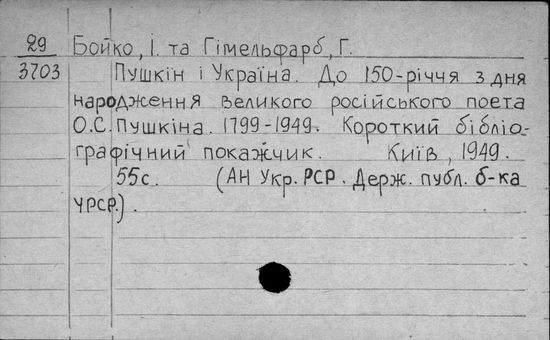 29 Бойко, І. та Гімельфарб, Г.
3703 Пушкін і Україна. До 150-річчя з дня
народження великого російського поета
О.С. Пушкіна. 1799-1949. Короткий бібліо-
графічний покажчик. Київ, 1949.
55с. (АН Укр. РСР. Держ. публ. б-ка
УРСР).